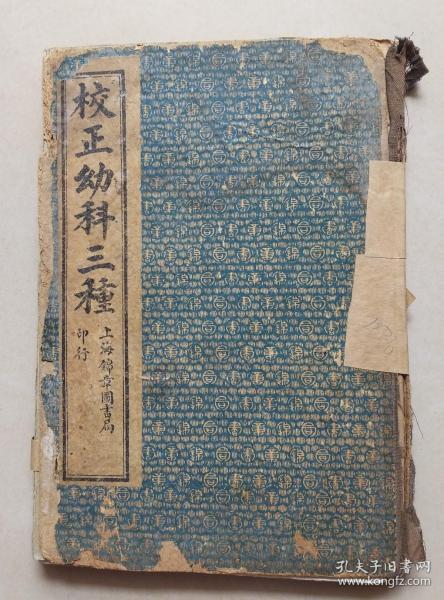 校正幼科三種
上海錦章圖書局
印行
孔夫子旧书网
www.kongfz.com